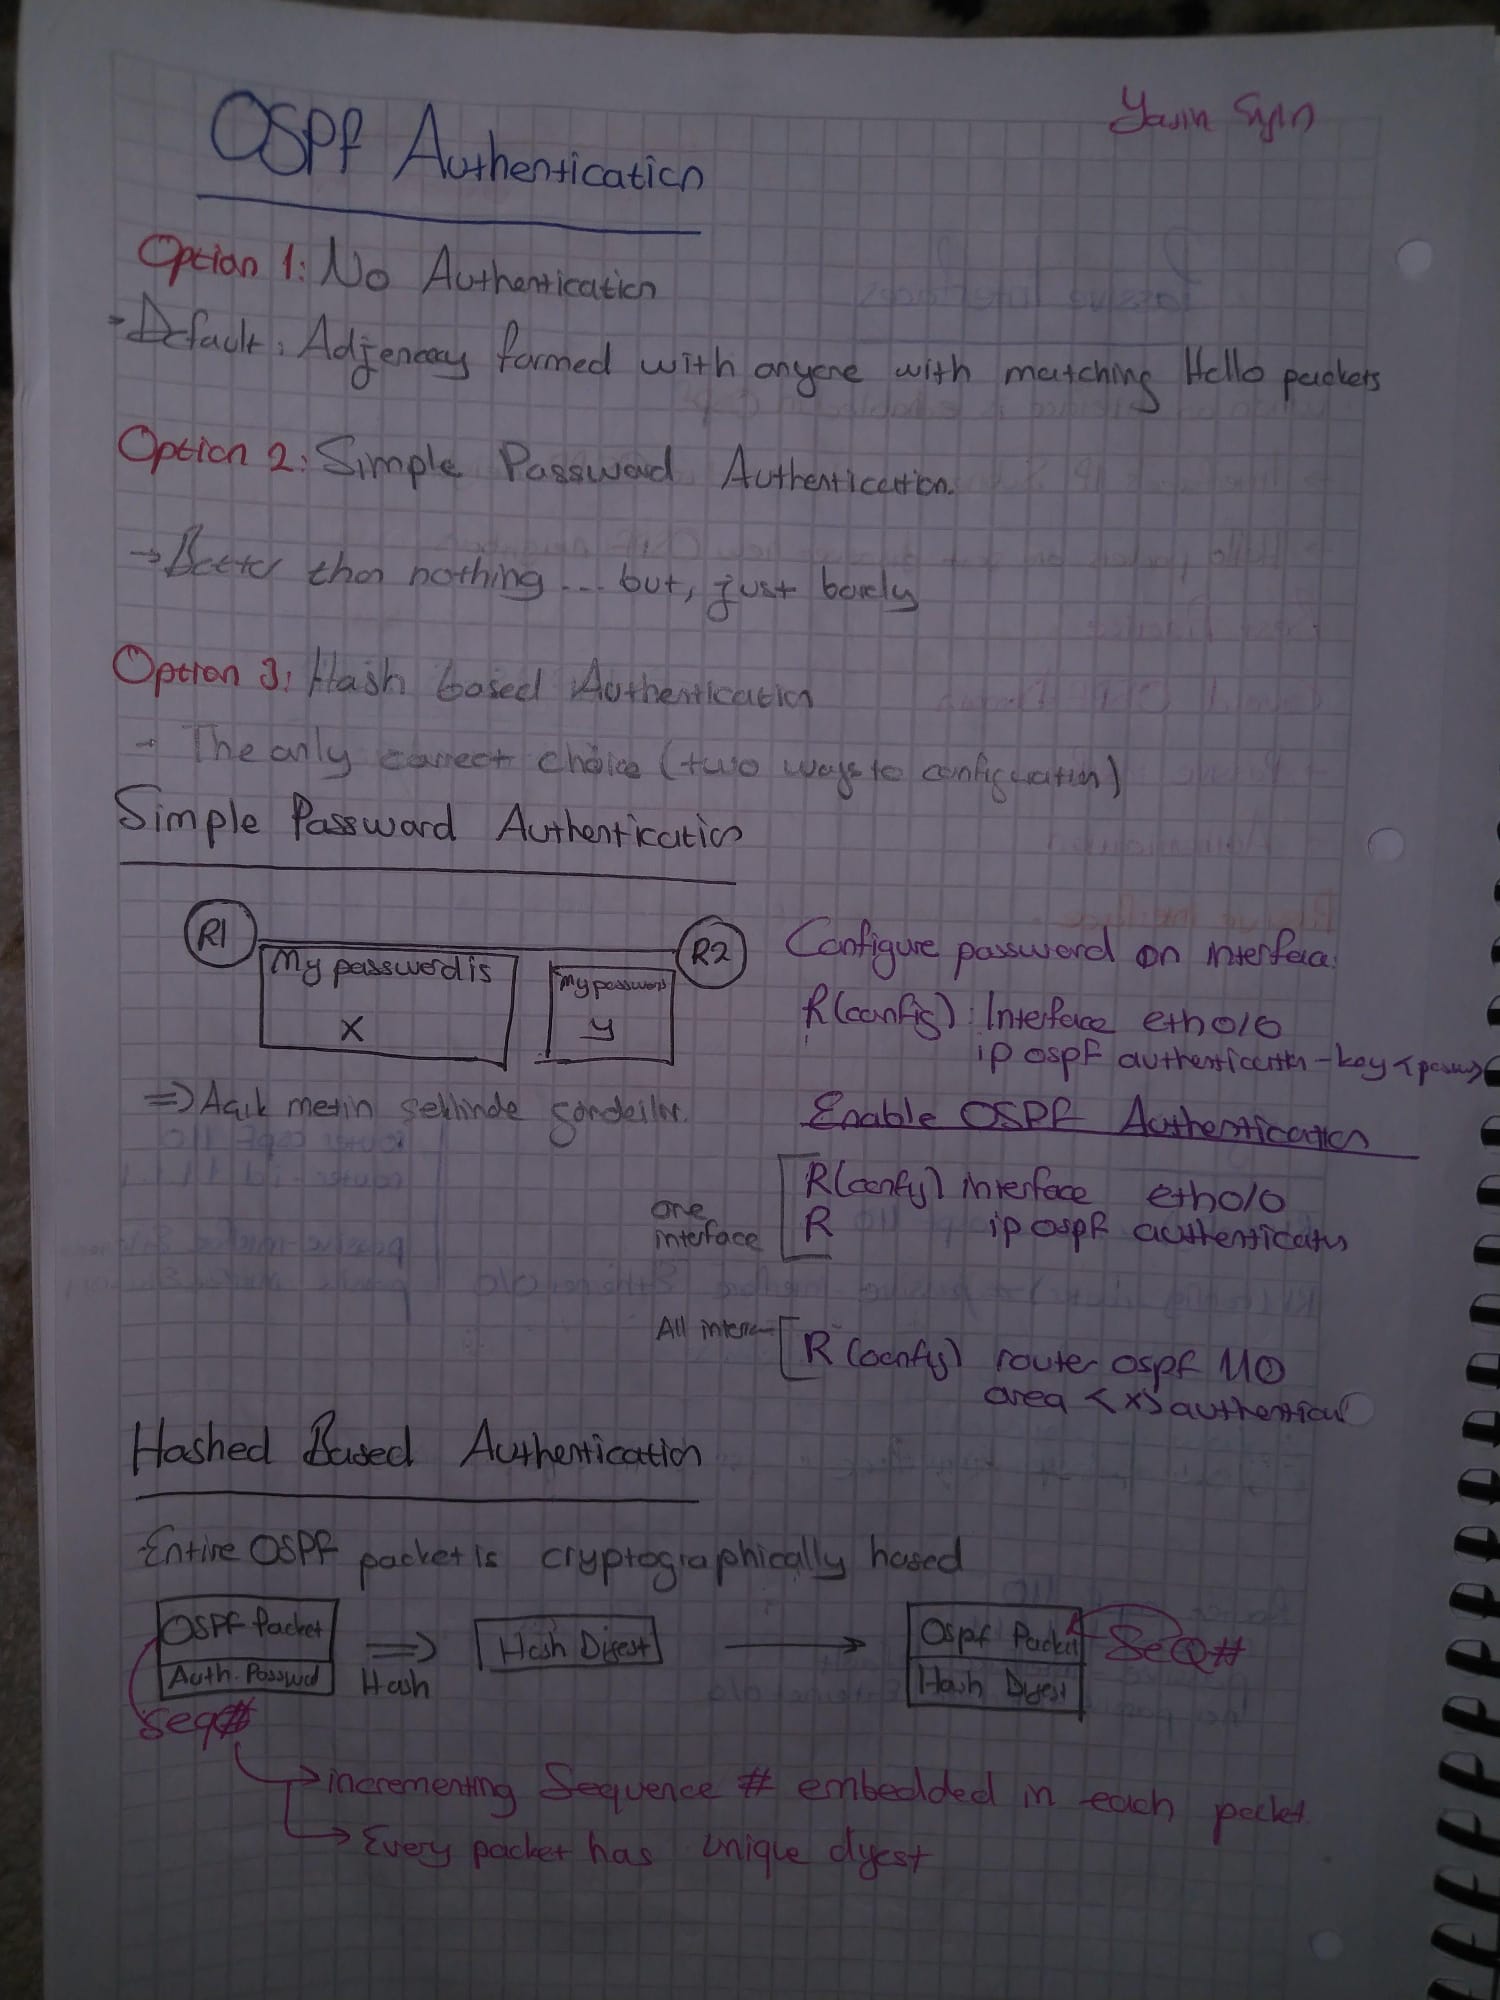 Yasin
OSPF Authentication
Option 1: No Authentication
Default: Adjencecy formed with anyone with matching Hello packets
Option 2: Simple Password Authentication.
→ Better than nothing... but, just barely
Option 3: Hash based Authentication
- The only correct choice (two ways to configuration)
Simple Password Authentication
R1
R2
My password is
X
My password
y
⇒ Açık metin seklinde gönderilir.
Configure password on interface
R(config): Interface eth0/0
ip ospf authentication-key <passw>
Enable OSPF Authentication
one
interface
R(config) interface eth0/0
R ip ospf authentication
All inter
R(config) router ospf 110
area <x> authentication
Hashed Based Authentication
- Entire OSPF packet is cryptographically hased
OSPF Packet
Auth. Passwd
⇒
Hash
Hash Digest
→
Ospf Packet
Hash Digest
SEQ#
seq#
→ incrementing Sequence # embedded in each packet
→ Every packet has unique dygest